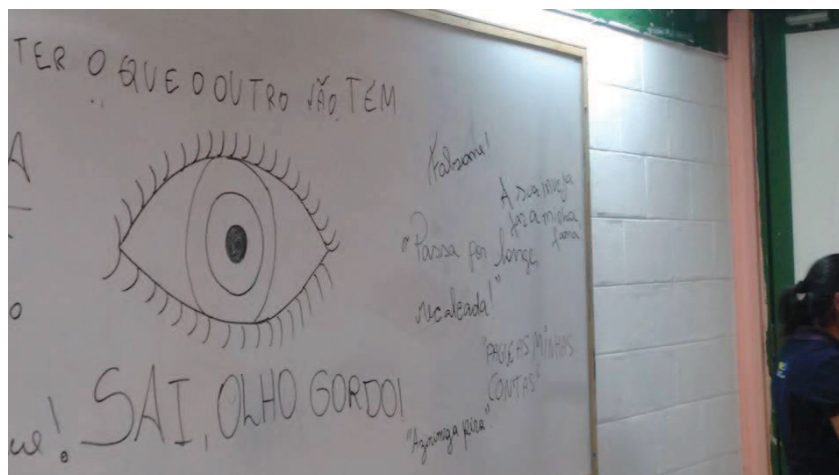 TER O QUE O OUTRO NÃO TEM
A
O
SAI, OLHO GORDO!
A sua inveja
faz a minha
fama
"Passa por longe,
recalcada!"
"PAGUE AS MINHAS
CONTAS"